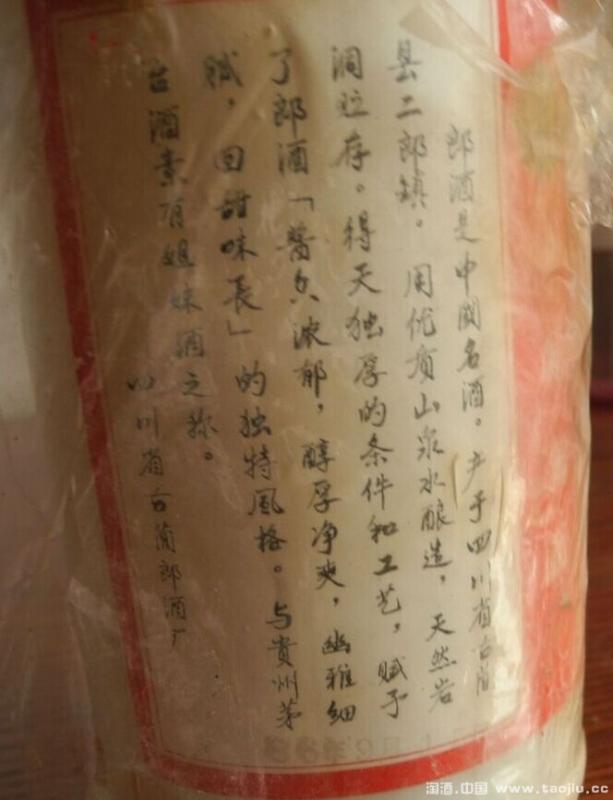 郎酒是中国名酒。产于四川省古蔺
县二郎镇。用优质山泉水酿造，天然岩
洞贮存。得天独厚的条件和工艺，赋予
了郎酒「酱香浓郁，醇厚净爽，幽雅细
腻，回甜味長」的独特風格。与贵州茅
台酒素有姐妹酒之称。
四川省古蔺郎酒厂
淘酒.中国 www.taojiu.cc